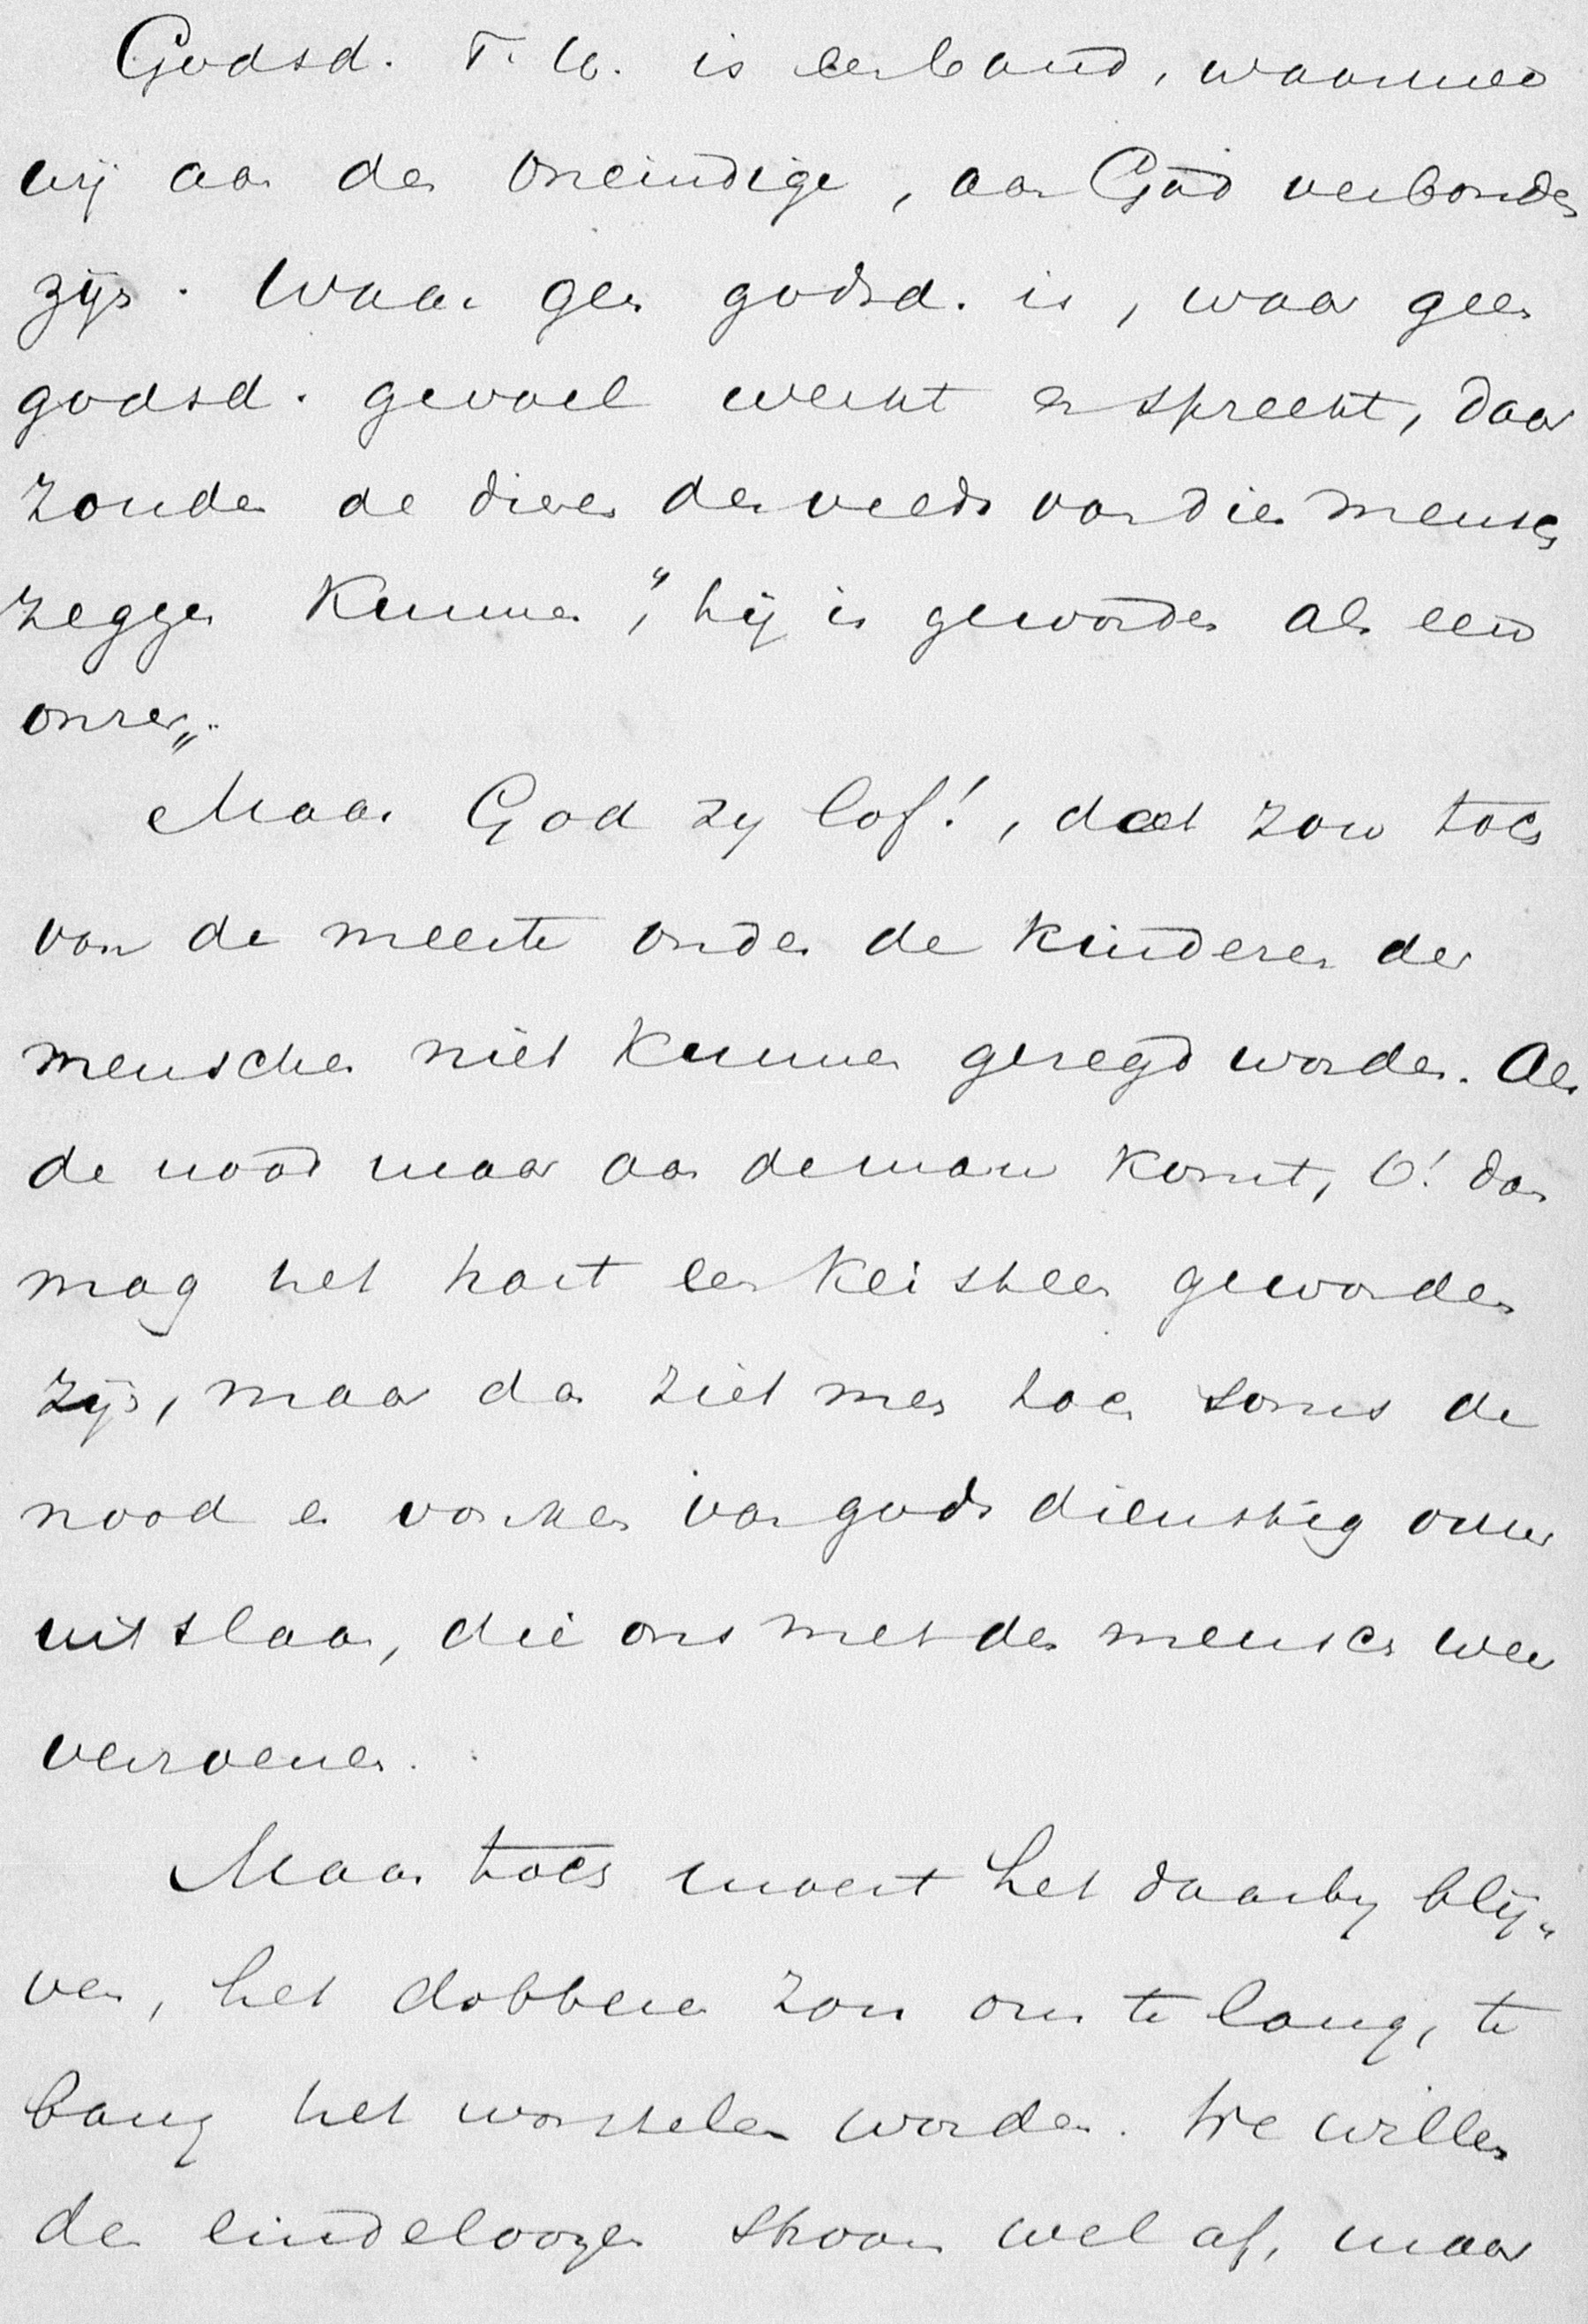 Godsd. T. H. is een band, waarmee
wij aan den Oneindige, aan God verbonden
zijn. Waar geen godsd. is, waar geen
godsd. gevoel werkt en spreekt, daar
zouden de dieren des velds van dien mensch
zeggen kunnen, "hij is geworden als een
onzer".
Maar God zy lof!, dat zou toch
van de meeste onder de kinderen der
menschen niet kunnen gezegd worden. Als
de nood maar aan de man komt, O! dan
mag het hart een keisteen geworden
zijn, maar dan ziet men hoe soms de
nood er vonken van godsdienstig vuur
uitslaan, die ons met den mensch weer
verzoenen.
Maar toch moest het daarby blij„
ven, het dobberen zou ons te lang, te
bang het worstelen worden. We willen
den eindeloozen stroom wel af, maar